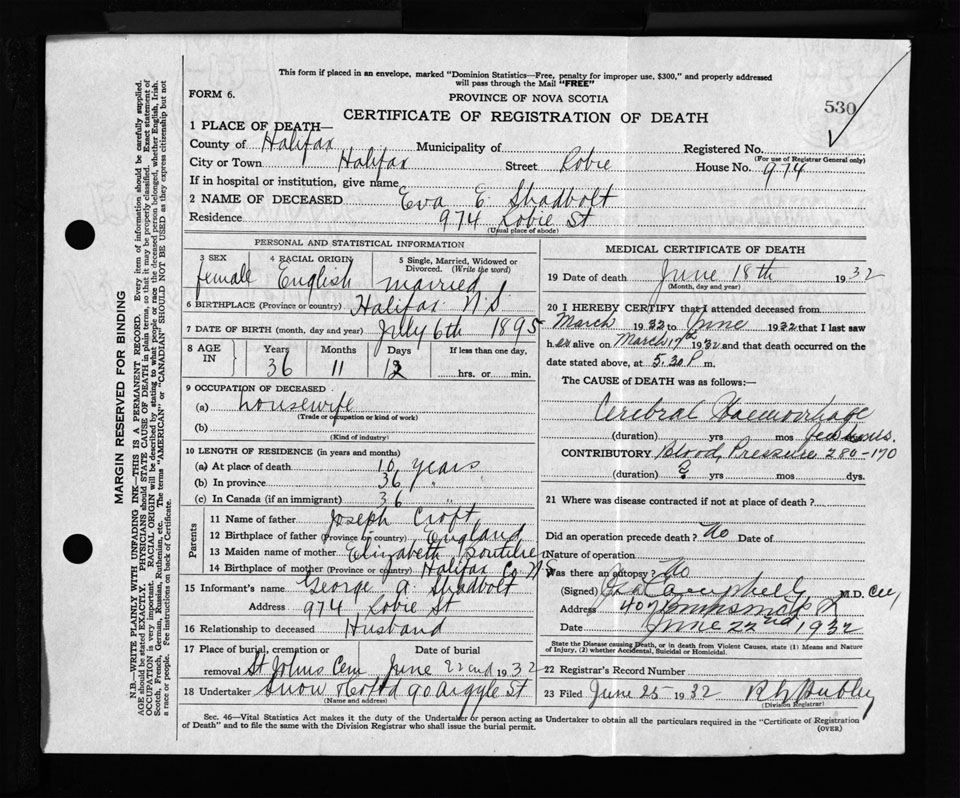 This form if placed in an envelope, marked "Dominion Statistics—Free, penalty for improper use, $300," and properly addressed
will pass through the Mail "FREE"
FORM 6.
PROVINCE OF NOVA SCOTIA
530
CERTIFICATE OF REGISTRATION OF DEATH
1 PLACE OF DEATH—
County of Halifax Municipality of Registered No.
(For use of Registrar General only)
City or Town Halifax Street Robie House No. 974
If in hospital or institution, give name
2 NAME OF DECEASED Eva E. Shadbolt
Residence 974 Robie St
(Usual place of abode)
PERSONAL AND STATISTICAL INFORMATION
3 SEX 4 RACIAL ORIGIN 5 Single, Married, Widowed or
Divorced. (Write the word)
female English married
6 BIRTHPLACE (Province or country) Halifax N.S.
7 DATE OF BIRTH (month, day and year) July 6th 1895
8 AGE IN Years Months Days If less than one day,
36 11 12 hrs. or min.
9 OCCUPATION OF DECEASED
(a) housewife
(Trade or occupation or kind of work)
(b)
(Kind of industry)
10 LENGTH OF RESIDENCE (in years and months)
(a) At place of death 10 years
(b) In province 36 "
(c) In Canada (if an immigrant) 36 "
Parents
11 Name of father Joseph Croft
12 Birthplace of father (Province or country) England
13 Maiden name of mother Elizabeth Boutilier
14 Birthplace of mother (Province or country) Halifax Co N.S
15 Informant's name George A. Shadbolt
Address 974 Robie St
16 Relationship to deceased Husband
17 Place of burial, cremation or Date of burial
removal St Johns Cem June 22nd 1932
18 Undertaker Snow & Co Ltd 90 Argyle St
(Name and address)
MEDICAL CERTIFICATE OF DEATH
19 Date of death June 18th 1932
(Month, day and year)
20 I HEREBY CERTIFY that I attended deceased from
March 1932 to June 1932 that I last saw
her alive on March 17th 1932 and that death occurred on the
date stated above, at 5.30 P m.
The CAUSE of DEATH was as follows:—
Cerebral Haemorrhage
(duration) yrs mos few hours.
CONTRIBUTORY Blood Pressure 280-170
(duration) ? yrs. mos. dys.
21 Where was disease contracted if not at place of death?
Did an operation precede death? No Date of
Nature of operation
Was there an autopsy? No
(Signed) Campbell M.D.
Address 407
Date June 22nd 1932
State the Disease causing Death, or in death from Violent Causes, state (1) Means and Nature
of Injury, (2) whether Accidental, Suicidal or Homicidal.
22 Registrar's Record Number
23 Filed June 25 1932
(Division Registrar)
Sec. 46—Vital Statistics Act makes it the duty of the Undertaker or person acting as Undertaker to obtain all the particulars required in the "Certificate of Registration
of Death" and to file the same with the Division Registrar who shall issue the burial permit.
(OVER)
MARGIN RESERVED FOR BINDING
N.B.—WRITE PLAINLY WITH UNFADING INK—THIS IS A PERMANENT RECORD. Every item of information should be carefully supplied.
AGE should be stated EXACTLY. PHYSICIANS should STATE CAUSE OF DEATH in plain terms, so that it may be properly classified. Exact statement of
OCCUPATION is very important. RACIAL ORIGIN will be described by stating to what people or race the deceased person belonged, whether English, Irish,
Scotch, French, German, Russian, Ruthenian, etc. The terms "AMERICAN" or "CANADIAN" SHOULD NOT BE USED as they express citizenship but not
a race or people. See instructions on back of Certificate.